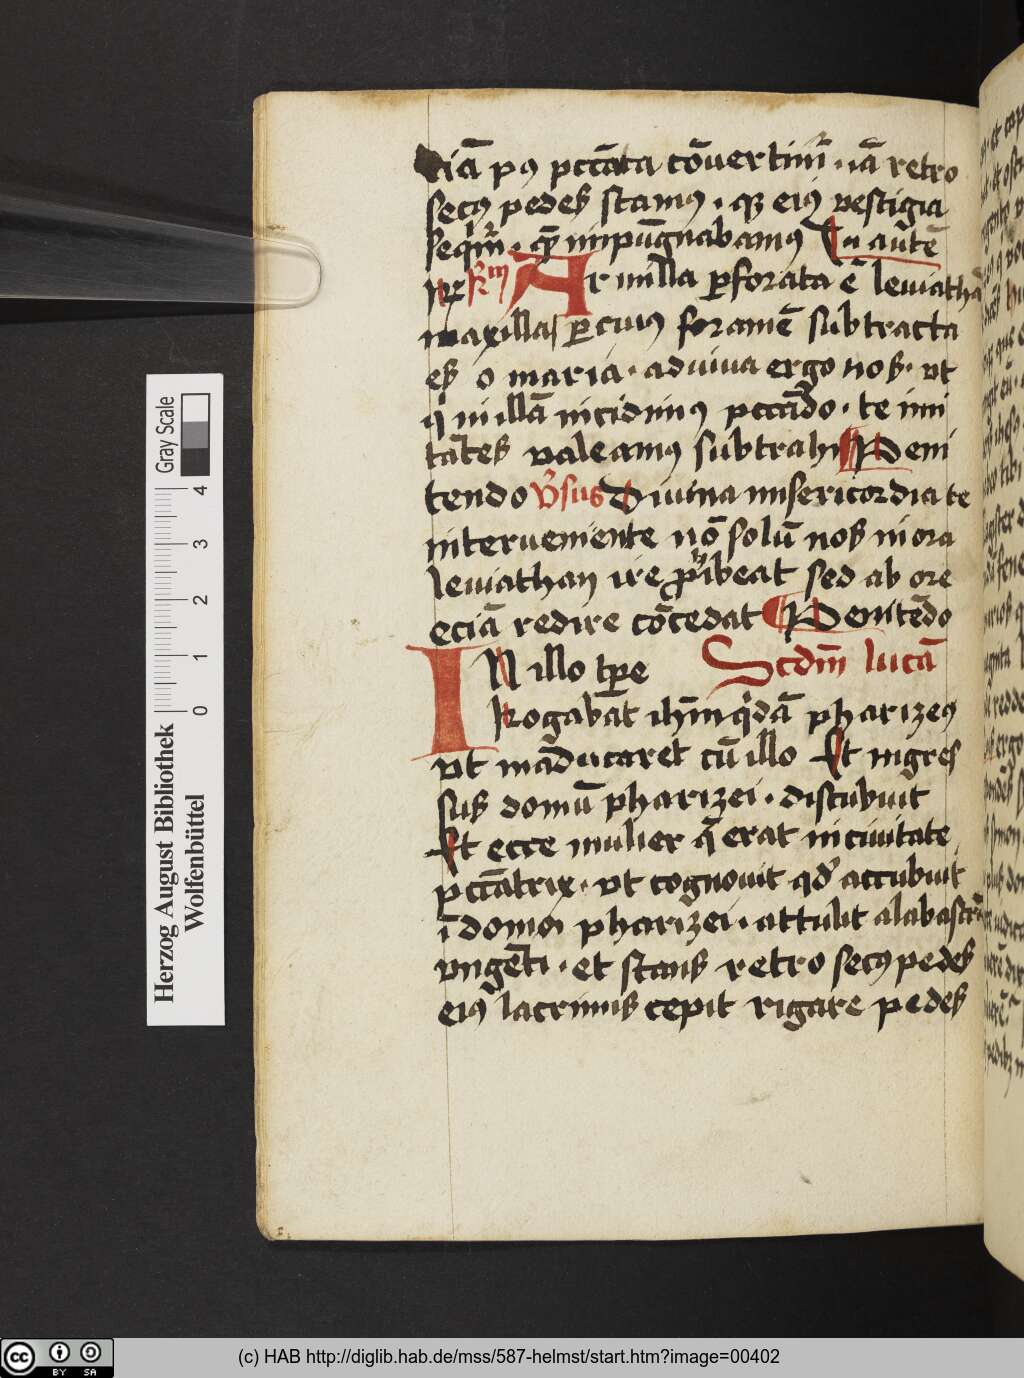 ciā pꝯ pccāta cōuertimꝛ · iā retro
secꝯ pedes stamꝯ · qꝫ eiꝯ vestigia
seqimꝛ · q̄ inpūgnabamꝯ Tu autē
Rm Armilla ꝑforata ē leuiathā
maxilla ꝑ cuius foramē subtracta
es o maria · adiuua ergo nos · vt
q i illā incidimꝯ pccādo · te imi
tātes valeamꝯ subtrahi Peni
tendo v̄sus Diuina misericordia te
interueniente nō solū nos in ora
leuiathan ire ꝓhibeat sed ab ore
eciā redire cōcedat Penitēdo
IN illo tꝑe Scdm lucā
Rogabāt ihm qidā pharizeꝯ
vt māducaret cū illo Et ingres
sus domū pharizei · discubuit
Et ecce mulier q̄ erat in ciuitate
pccātrix · vt cognouit qd accubuit
ī domo pharizei · attulit alabastrꝛ
vngēti · et stans retro secꝯ pedes
eiꝯ lacrimis cepit rigare pedes
Herzog August Bibliothek
Wolfenbüttel
Gray Scale
0 1 2 3 4
(c) HAB http://diglib.hab.de/mss/587-helmst/start.htm?image=00402
cc BY SA